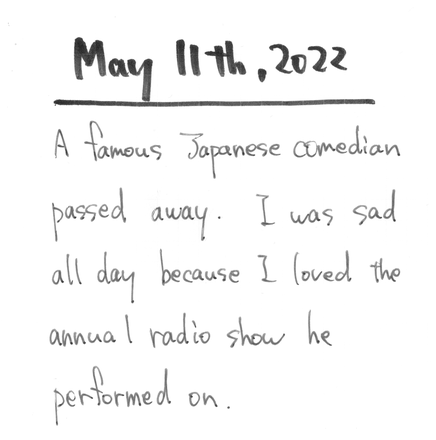 May 11th, 2022
A famous Japanese comedian
passed away. I was sad
all day because I loved the
annual radio show he
performed on.